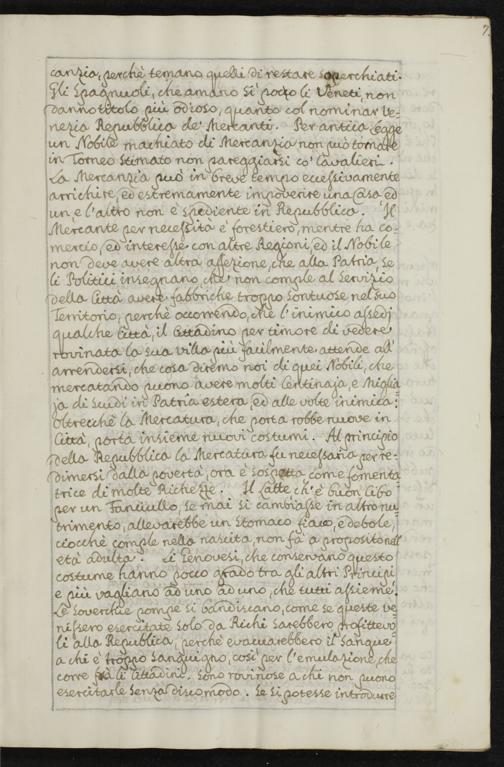 canzia, perchè temano quelli di restare soperchiati.
Gli Spagnuoli, che amano sì poco li Veneti, non
danno titolo più odioso, quanto col nominar Ve-
nezia Repubblica de' Mercanti. Per antica legge
un Nobile machiato di Mercanzia non può tornare
in Torneo stimato non pareggiarsi co' Cavalieri.
La Mercanzia può in breve tempo eccessivamente
arrichire, ed estremamente impoverire una Casa, ed
un e l'altro non è spediente in Repubblica. Il
Mercante per necessità è forestiero, mentre ha co-
mercio, ed interesse con altre Regioni, ed il Nobile
non deve avere altra affezione, che alla Patria, se
li Politici insegnano, che non comple al servizio
della Città avere fabbriche troppo sontuose nel suo
Territorio, perchè occorrendo, che l'inimico assedj
qualche Città, il Cittadino per timore di vedere
rovinata la sua villa più facilmente attende all'
arrendersi, che cosa diremo noi di quei Nobili, che
mercatando puono avere molti Centinaja, e Miglia-
ja di scudi in Patria estera, ed alle volte inimica:
oltrecchè la Mercatura, che porta robbe nuove in
Città, porta insieme nuovi costumi. Al principio
della Repubblica la Mercatura fu necessaria per re-
dimersi dalla povertà, ora è sospetta come fomenta-
trice di molte Richezze. Il Latte ch'è buon cibo
per un Fanciullo, se mai si cambiasse in altro nu-
trimento, allevarebbe un stomaco fiaco, e debole,
ciocchè comple nella nascita, non fà a proposito nell'
età adulta. Li Genovesi, che conservano questo
costume hanno poco grado tra gli altri Principi
e più vagliano ad uno ad uno, che tutti assieme.
Le soverchie pompe si bandiscano, come se queste ve-
nissero esercitate solo da Richi sarebbero profittevo-
li alla Repubblica, perchè evacuarebbero il sangue
a chi è troppo sanguigno, così per l'emulazione, che
corre frà li Cittadini. Sono rovinose a chi non puono
esercitarle senza discomodo. Se si potesse introdurre